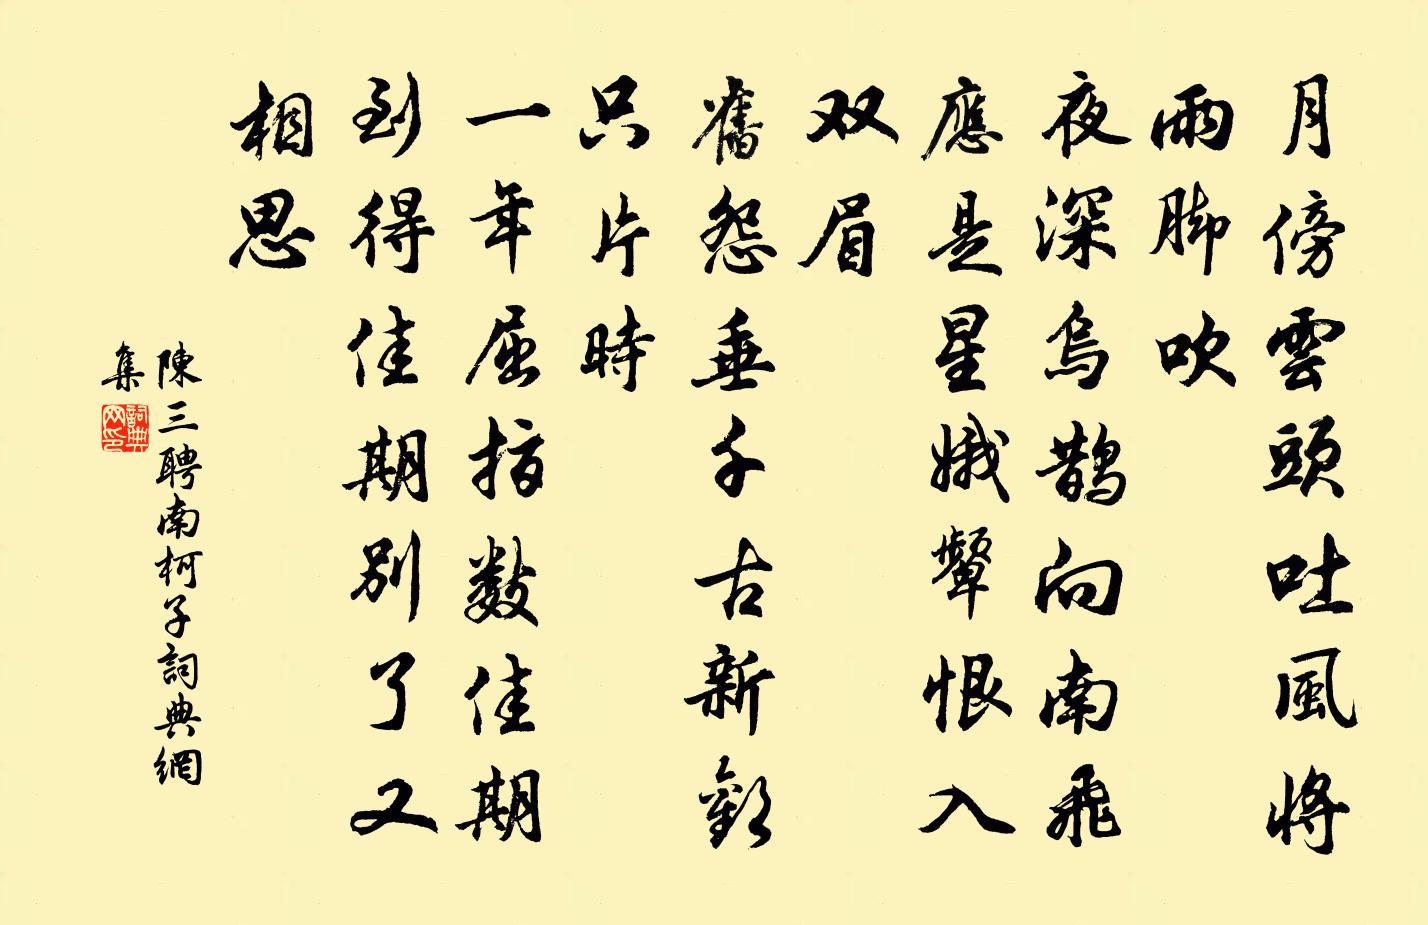 月傍雲頭吐風將
雨脚吹
夜深烏鵲向南飛
應是星娥顰恨入
双眉
舊怨垂千古新歡
只片時
一年屈指數佳期
到得佳期別了又
相思
陳三聘南柯子詞典網
集
詞典網印